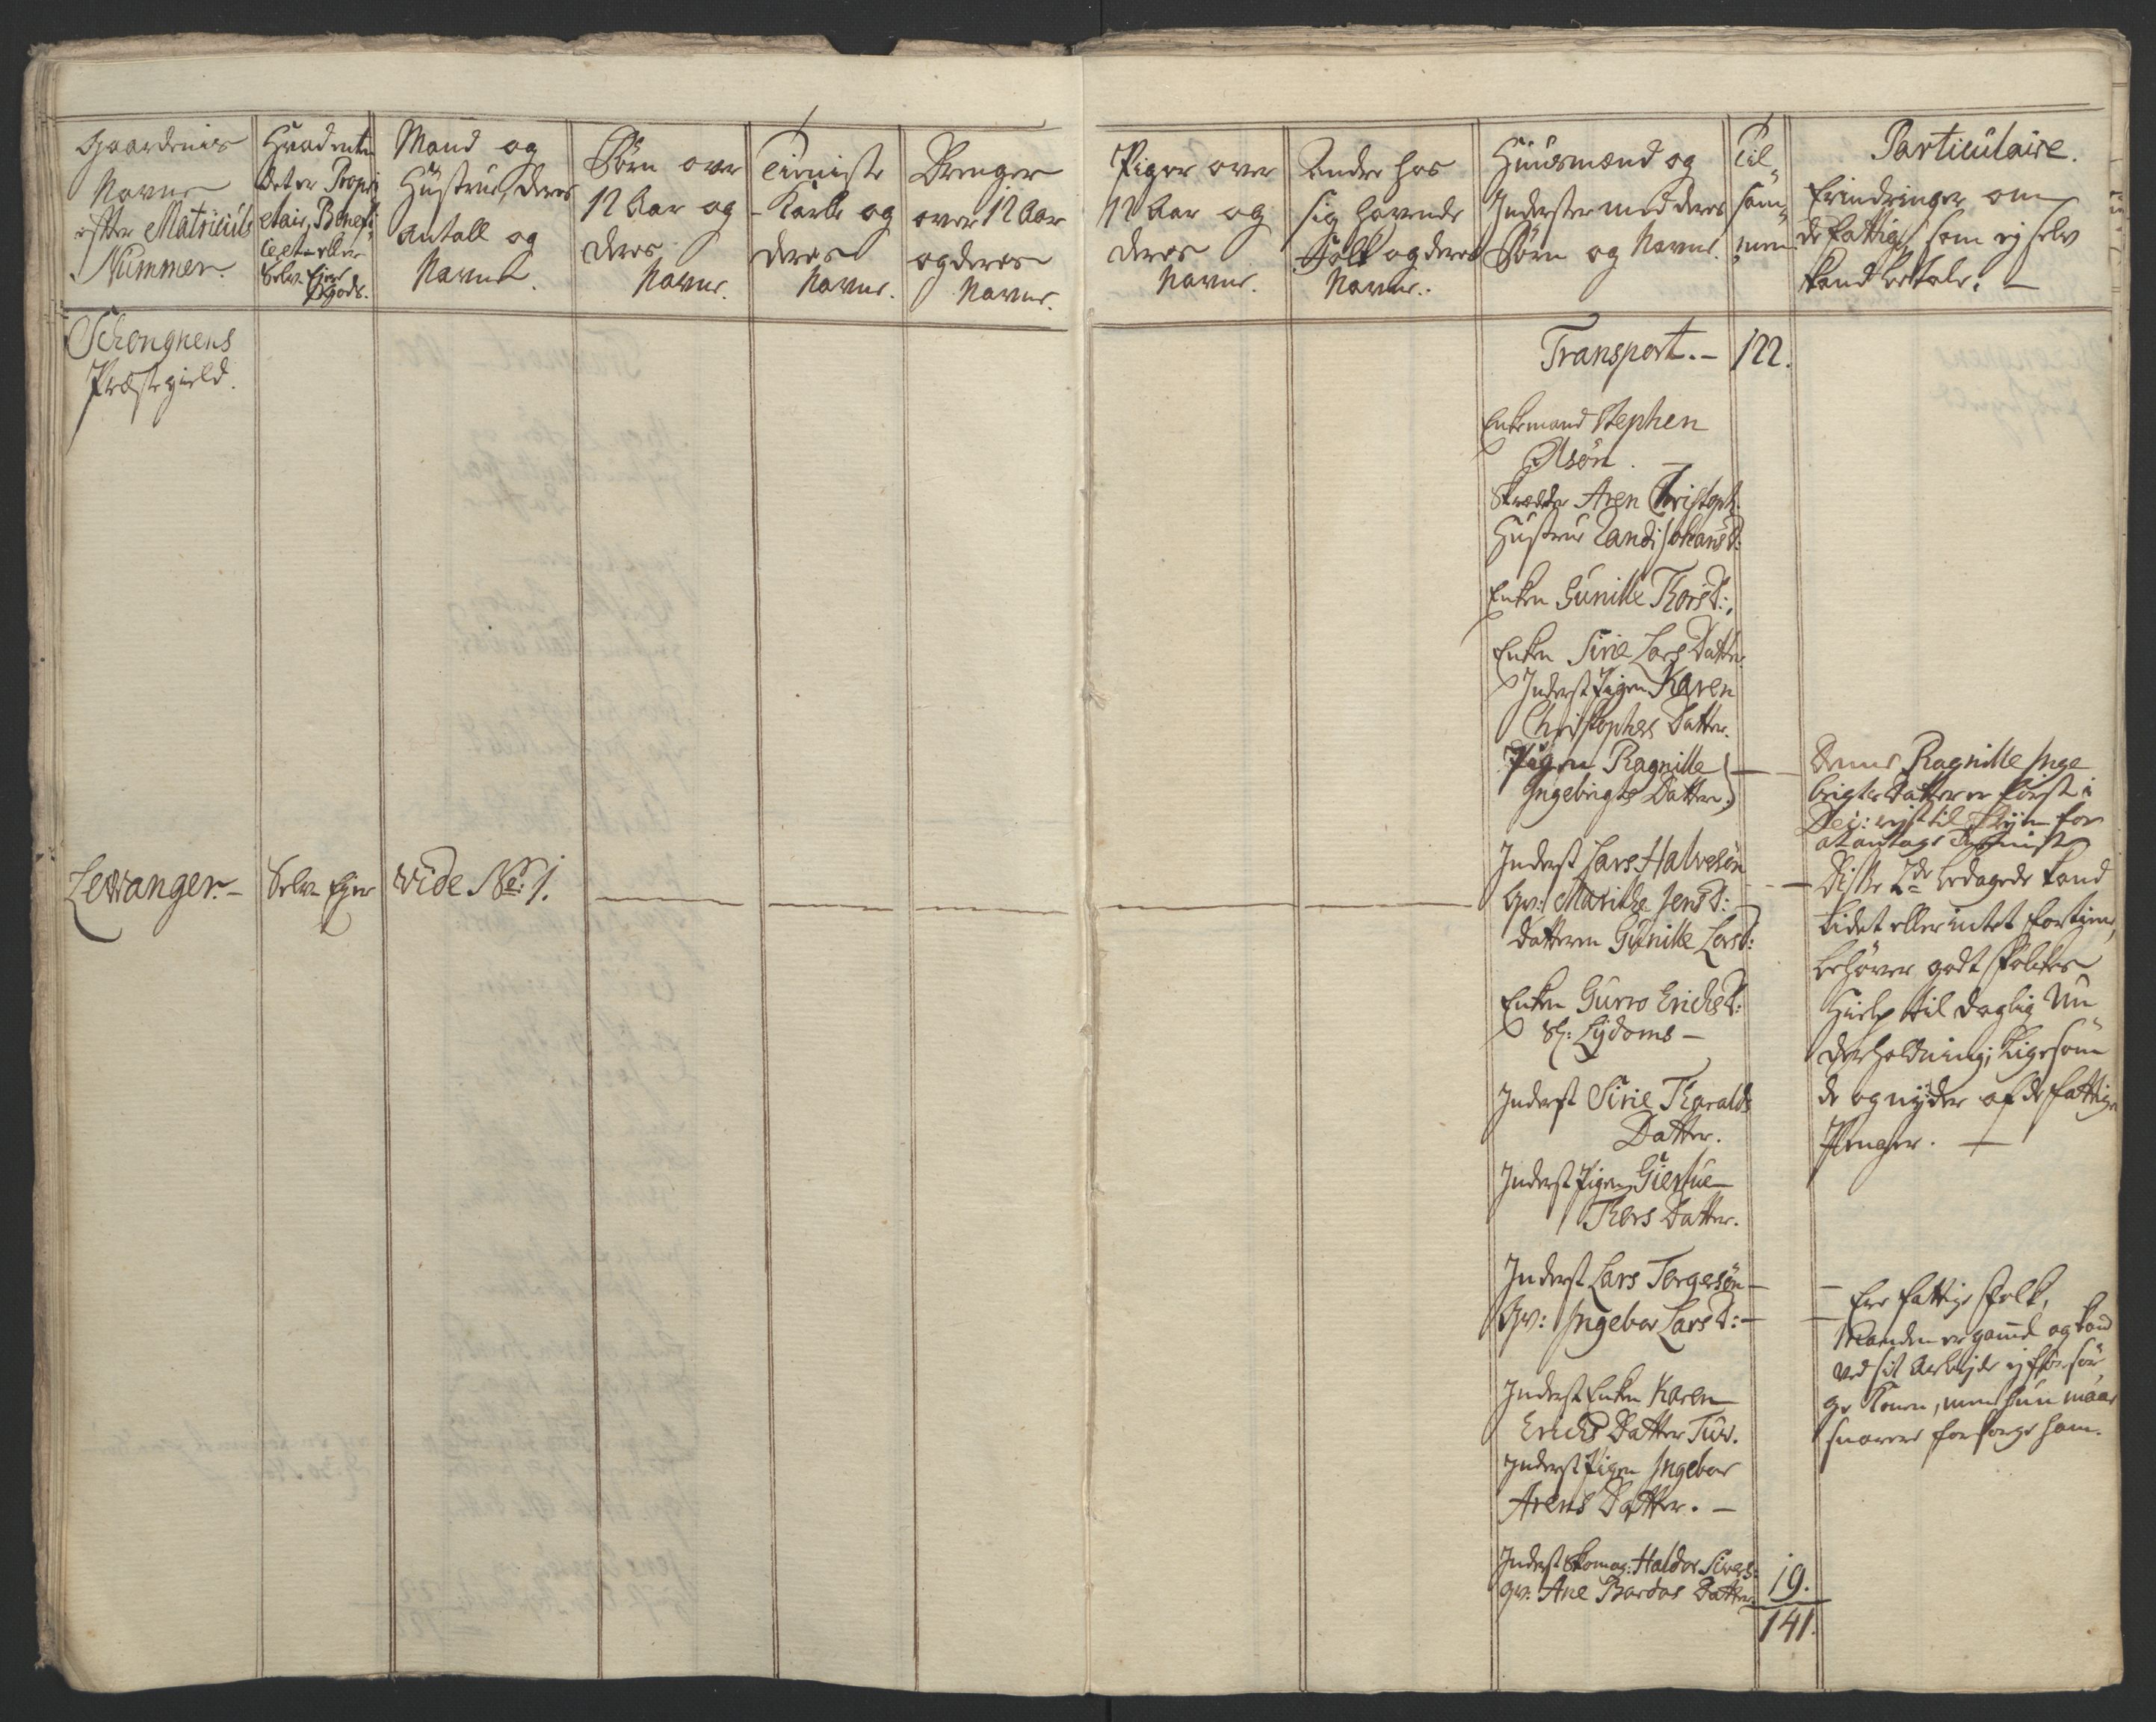 Gaardenes
Navne
efter Matriculs
Nummer.
Hvad enten
det er Propri
etair, Benefi-
ceret eller
Selv-Ejer
Gods.
Mand og
Hustrue, deres
Antall og
Navne.
Børn over
12 Aar og
deres
Navne.
Tieniste
-Karle og
deres
Navne.
Drenger
over 12 Aar
og deres
Navne.
Piger over
12 Aar og
deres
Navne.
Andre hos
sig havende
Folk og deres
Navne.
Huusmænd og
Inderster med deres
Børn og Navne.
Til
sam-
men
Particulaire.
Erindringer om
de fattige som ej selv
kand betale. –
Schongnens
Præstegield.
Transport. – 122.
Enkemand Stephen
Olsøn. –
Skræder Aren Christoph.
Hustrue Randi JohansD:
Enken Gunille ThorsD:
Enken Sirie Lars Datter
Inderst Pigen Karen
Christophers Datter.
Pigen Ragnille
Ingebrigts Datter.
Denne Ragnille Inge
brigts Datter er først i
at antage Tieniste
Lewanger. –
Selv-Ejer
vide No: 1.
Inderst Lars Halvesøn
Qv: Marithe JensD:
Datteren Gunille LarsD:
Diste 2de bedagede kand
lidet eller intet fortiene,
behøver godt Folkes
Hielp til daglig Un-
derholdning; ligesom
de og nyder af de fattiges
Penger. –
Enken Gurro ErichsD:
Sl: Lydoms –
Inderst Sirie Tharalds
Datter.
Inderst Pigen Giertrue
Thors Datter.
Inderst Lars Torgersøn –
Qv: Ingebor LarsD: –
– Ere fattige Folk,
Manden er gaml og kand
ved sit Arbejde ej forsør
ge Konen, men hun maae
snarere forsørge ham.
Inderst Enken Karen
Erichs Datter Tuv.
Inderst Pigen Ingebor
Arens Datter. –
Inderst Skomag: Haldor Sivers:
Qv: Ane Bardos Datter.
19.
141.